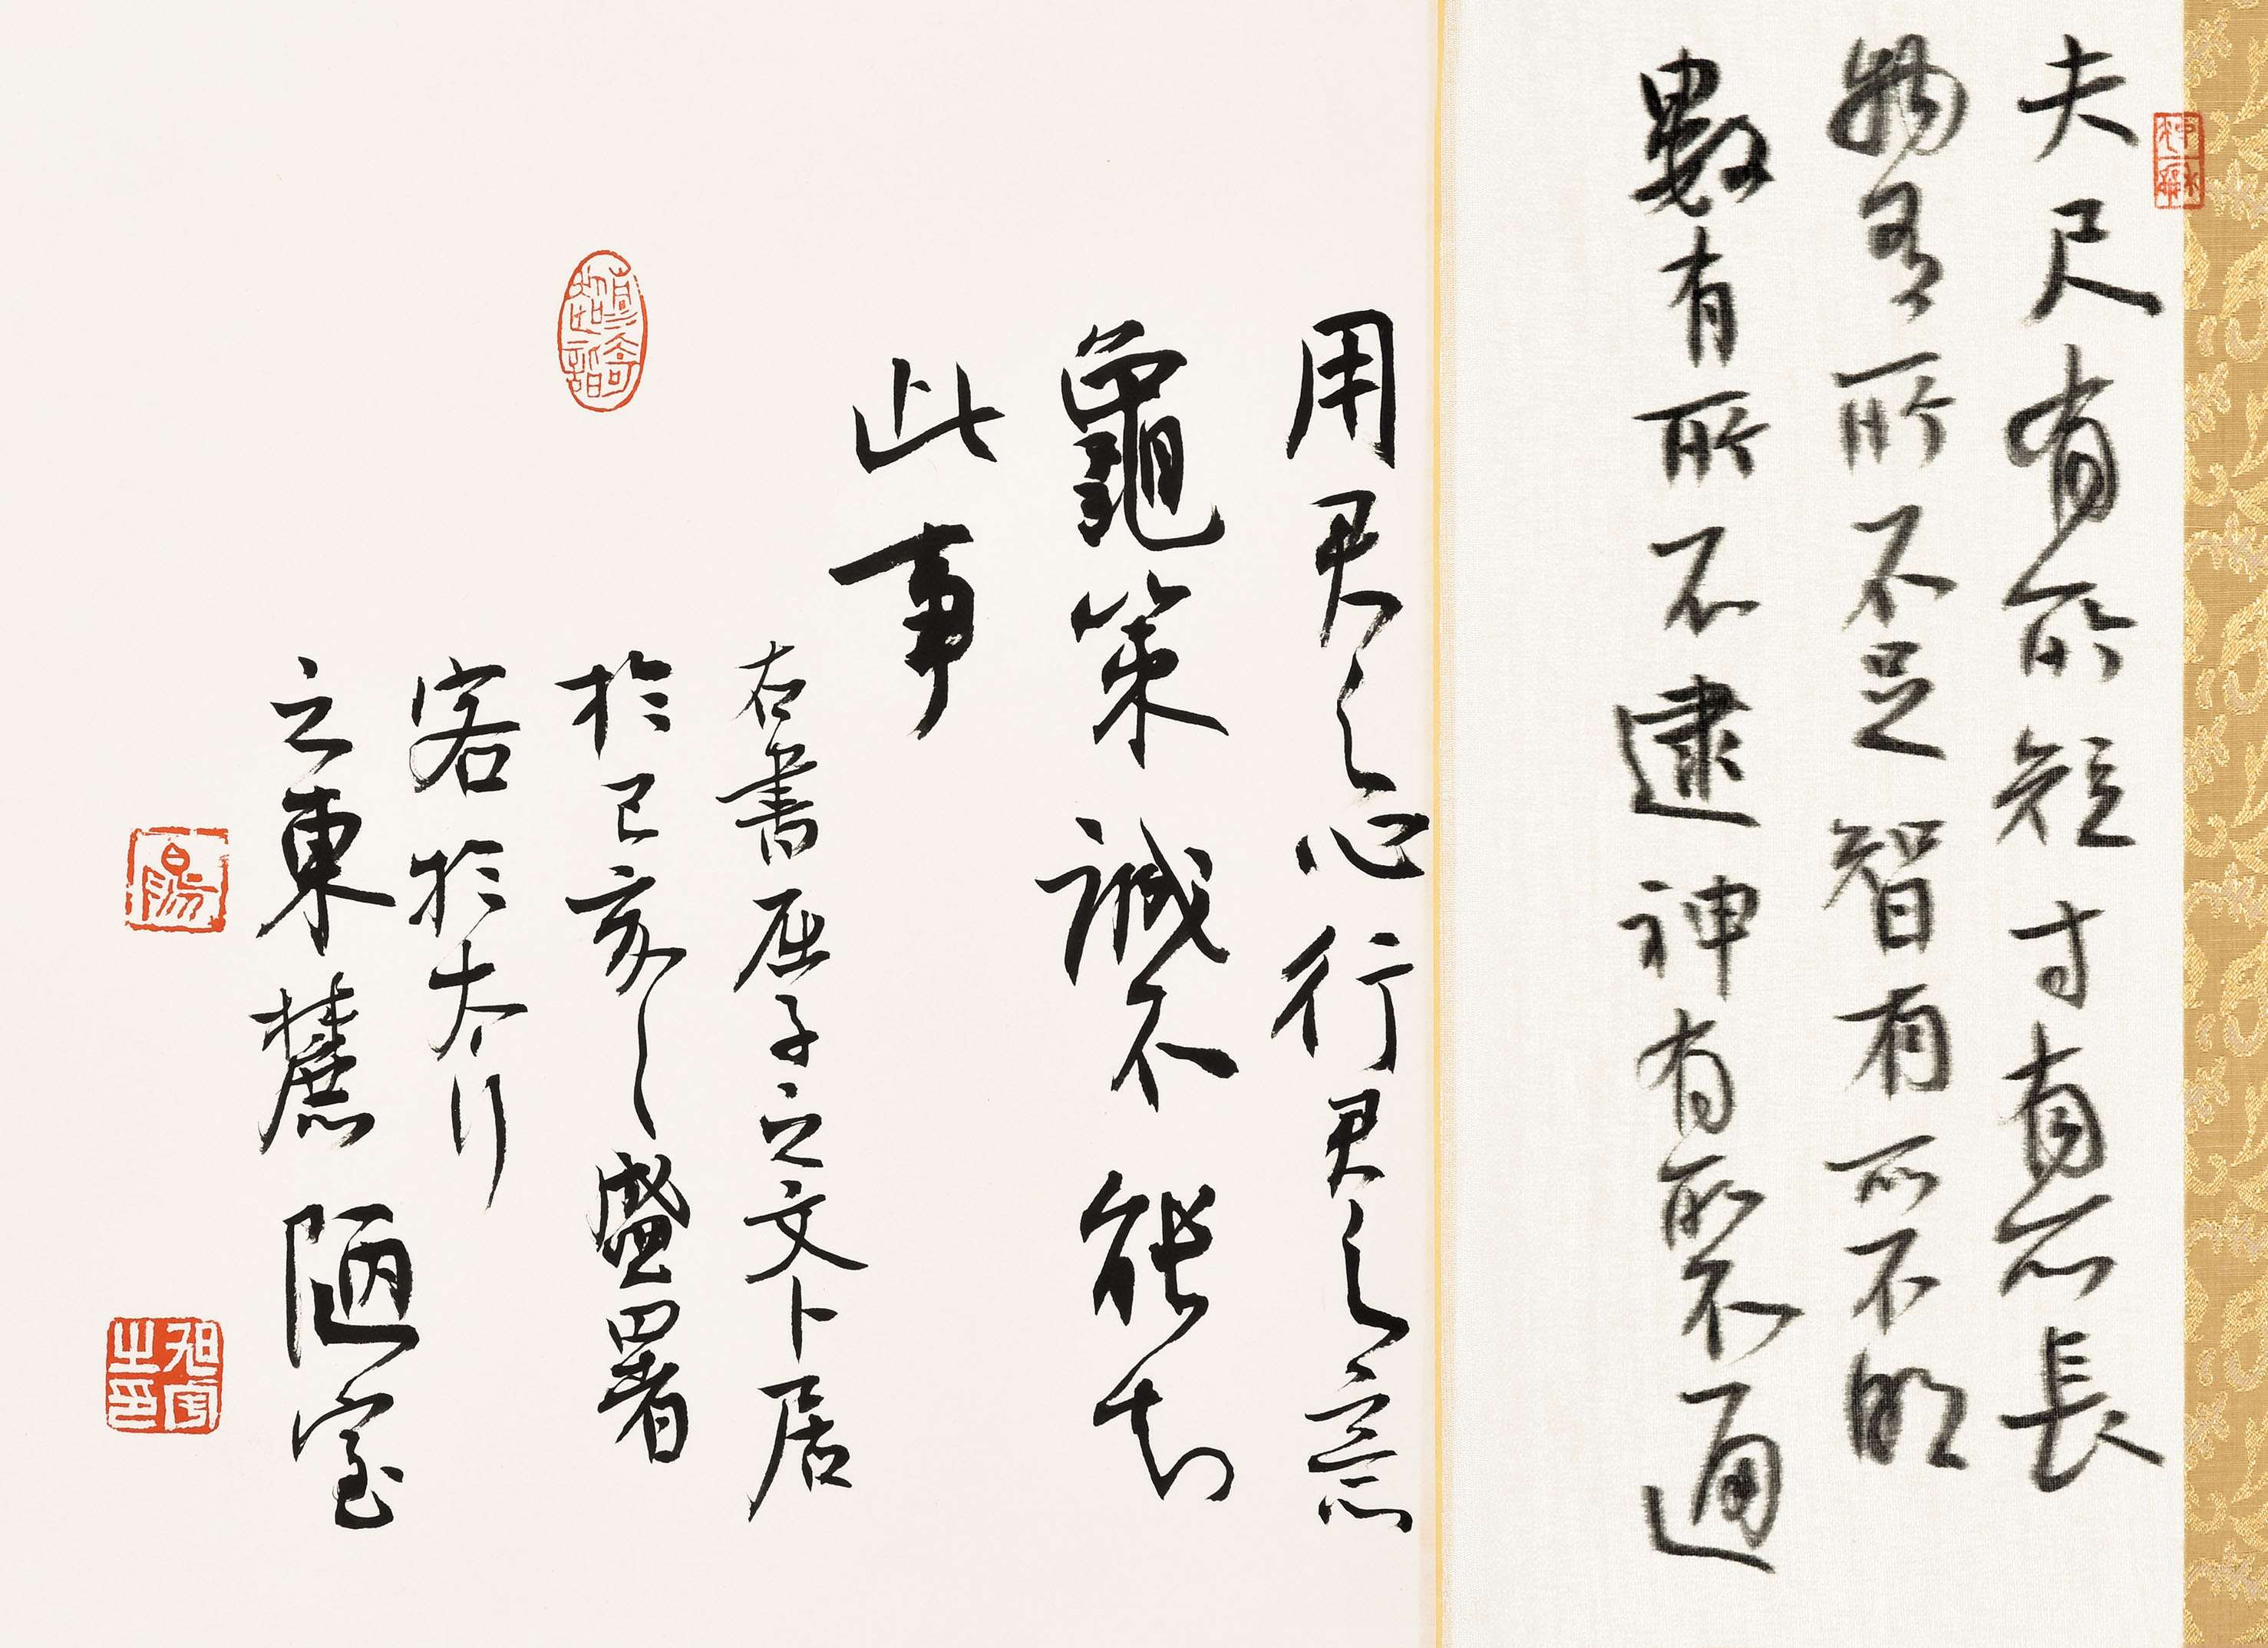 夫尺有所短寸有所長
物有所不足智有所不明
數有所不逮神有所不通
用君之心行君之意
龜策誠不能知
此事
右書屈子之文卜居
於己亥之盛署
客於太行
之東麓陋室